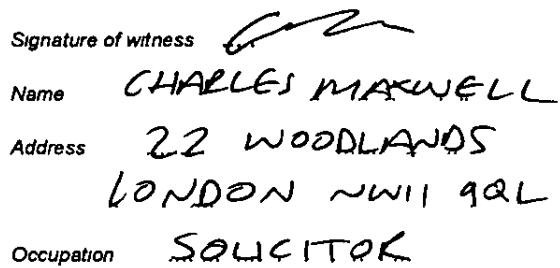 Signature of witness
Name CHARLES MAXWELL
Address 22 WOODLANDS
LONDON NW11 9QL
Occupation SOLICITOR